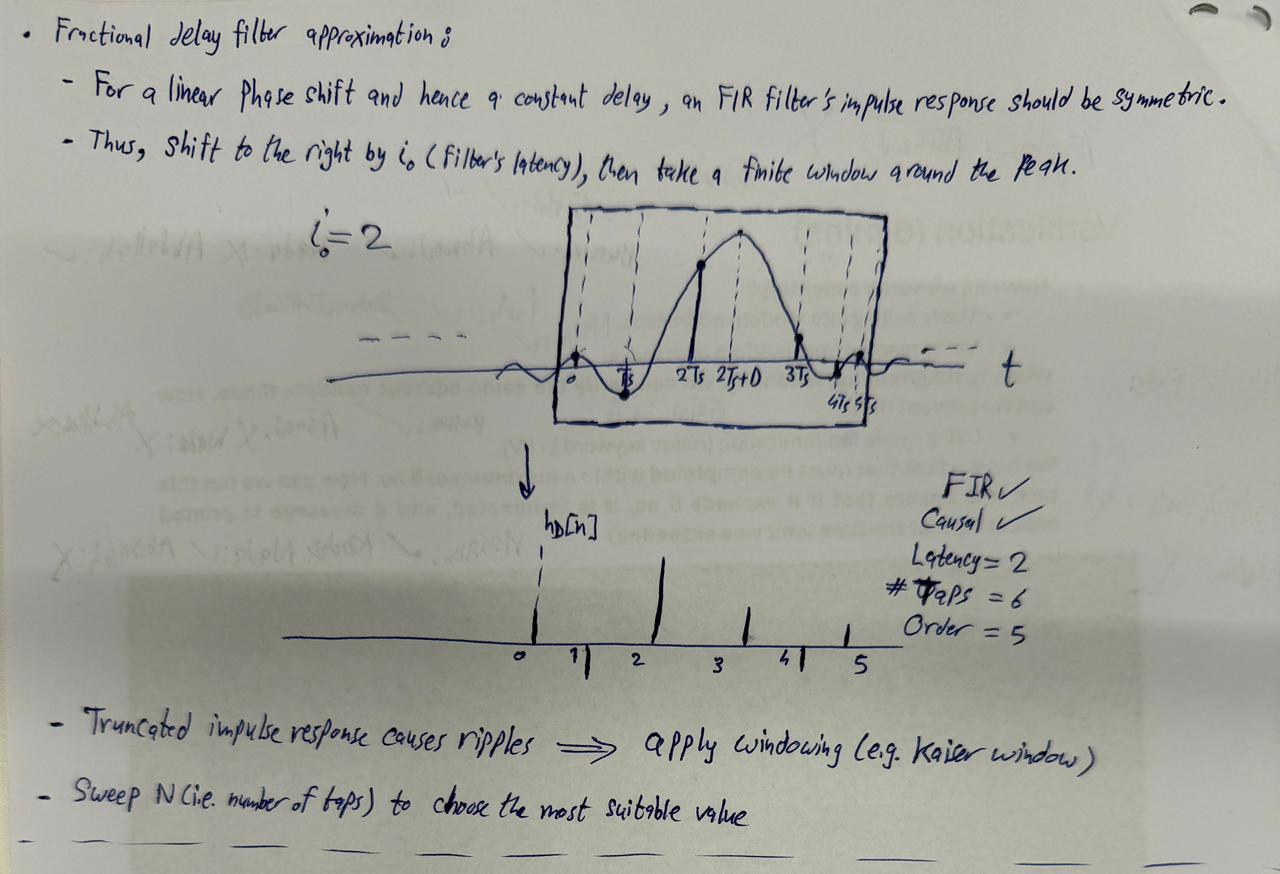 • Fractional delay filter approximation:
- For a linear phase shift and hence a constant delay, an FIR filter's impulse response should be symmetric.
- Thus, shift to the right by i₀ (filter's latency), then take a finite window around the peak.
i₀ = 2
0 Ts 2Ts 2Ts+D 3Ts 4Ts 5Ts t
hD[n]
FIR ✓
Causal ✓
Latency = 2
# Taps = 6
Order = 5
0 1 2 3 4 5
- Truncated impulse response causes ripples ⟹ apply windowing (e.g. Kaiser window)
- Sweep N (i.e. number of taps) to choose the most suitable value